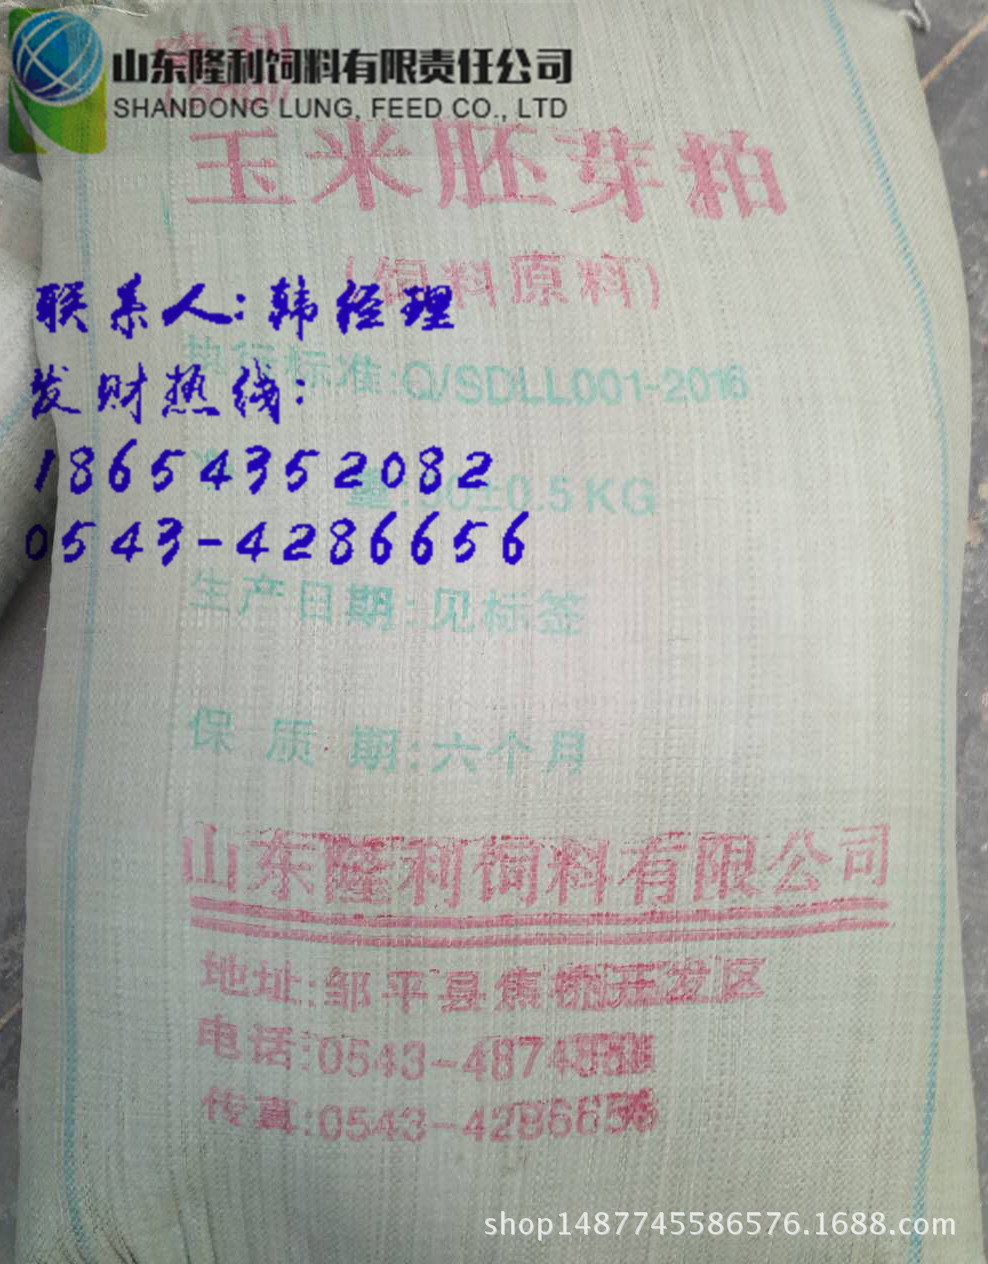 山东隆利饲料有限责任公司
SHANDONG LUNG, FEED CO., LTD
玉米胚芽粕
(饲料原料)
联系人:韩经理
执行标准:Q/SDLL001-2016
发财热线:
18654352082
量:50±0.5KG
0543-4286656
生产日期:见标签
保质期:六个月
山东隆利饲料有限公司
地址:邹平县焦桥开发区
电话:0543-4874
传真:0543-4286656
shop1487745586576.1688.com